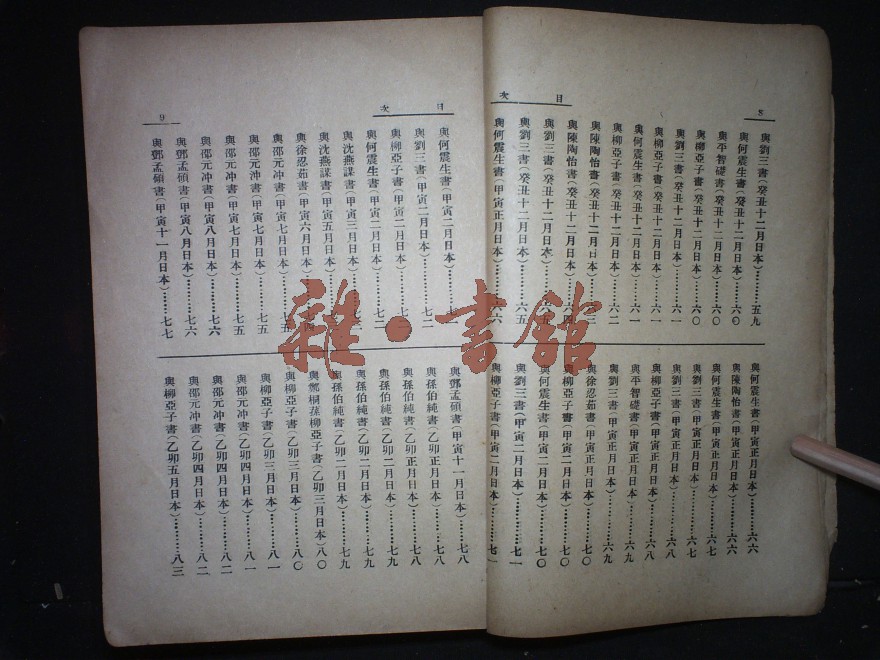 目次
8
與劉三書(癸丑十二月日本)………五九
與何震生書(癸丑十二月日本)………六〇
與平智礎書(癸丑十二月日本)………六〇
與柳亞子書(癸丑十二月日本)………六〇
與劉三書(癸丑十二月日本)………六一
與柳亞子書(癸丑十二月日本)………六一
與何震生書(癸丑十二月日本)
與柳亞子書(癸丑十二月日本)………六二
與陳陶怡書(癸丑十二月日本)
與陳陶怡書(癸丑十二月日本)………六四
與劉三書(癸丑十二月日本)
與劉三書(癸丑十二月日本)………六五
與何震生書(甲寅正月日本)………六六
與何震生書(甲寅正月日本)………六六
與陳陶怡書(甲寅正月日本)………六六
與何震生書(甲寅正月日本)………六七
與劉三書(甲寅正月日本)………六七
與劉三書(甲寅正月日本)………六八
與柳亞子書(甲寅正月日本)………六八
與平智礎書(甲寅正月日本)………六九
與劉三書(甲寅正月日本)………六九
與徐忍茹書(甲寅正月日本)………七〇
與柳亞子書(甲寅二月日本)………七〇
與何震生書(甲寅二月日本)………七〇
與劉三書(甲寅二月日本)………七一
與柳亞子書(甲寅二月日本)………七一
目次
9
與何震生書(甲寅二月日本)
與劉三書(甲寅二月日本)………七二
與柳亞子書(甲寅二月日本)
與何震生書(甲寅二月日本)………七二
與沈燕謀書(甲寅三月日本)
與沈燕謀書(甲寅五月日本)
與徐忍茹書(甲寅六月日本)
與邵元冲書(甲寅七月日本)………七五
與邵元冲書(甲寅七月日本)………七五
與邵元冲書(甲寅七月日本)………七五
與邵元冲書(甲寅八月日本)………七六
與鄧孟碩書(甲寅八月日本)………七六
與鄧孟碩書(甲寅十一月日本)………七七
與鄧孟碩書(甲寅十一月日本)………七八
與孫伯純書(乙卯正月日本)………七八
與孫伯純書(乙卯正月日本)………七八
與孫伯純書(乙卯二月日本)………七九
與孫伯純書(乙卯二月日本)………七九
與孫伯純書(乙卯二月日本)………七九
與鄭桐蓀柳亞子書(乙卯三月日本)八〇
與柳亞子書(乙卯三月日本)………八〇
與柳亞子書(乙卯三月日本)………八一
與邵元冲書(乙卯四月日本)………八一
與邵元冲書(乙卯四月日本)………八二
與邵元冲書(乙卯四月日本)………八二
與柳亞子書(乙卯五月日本)………八三
雜·書館